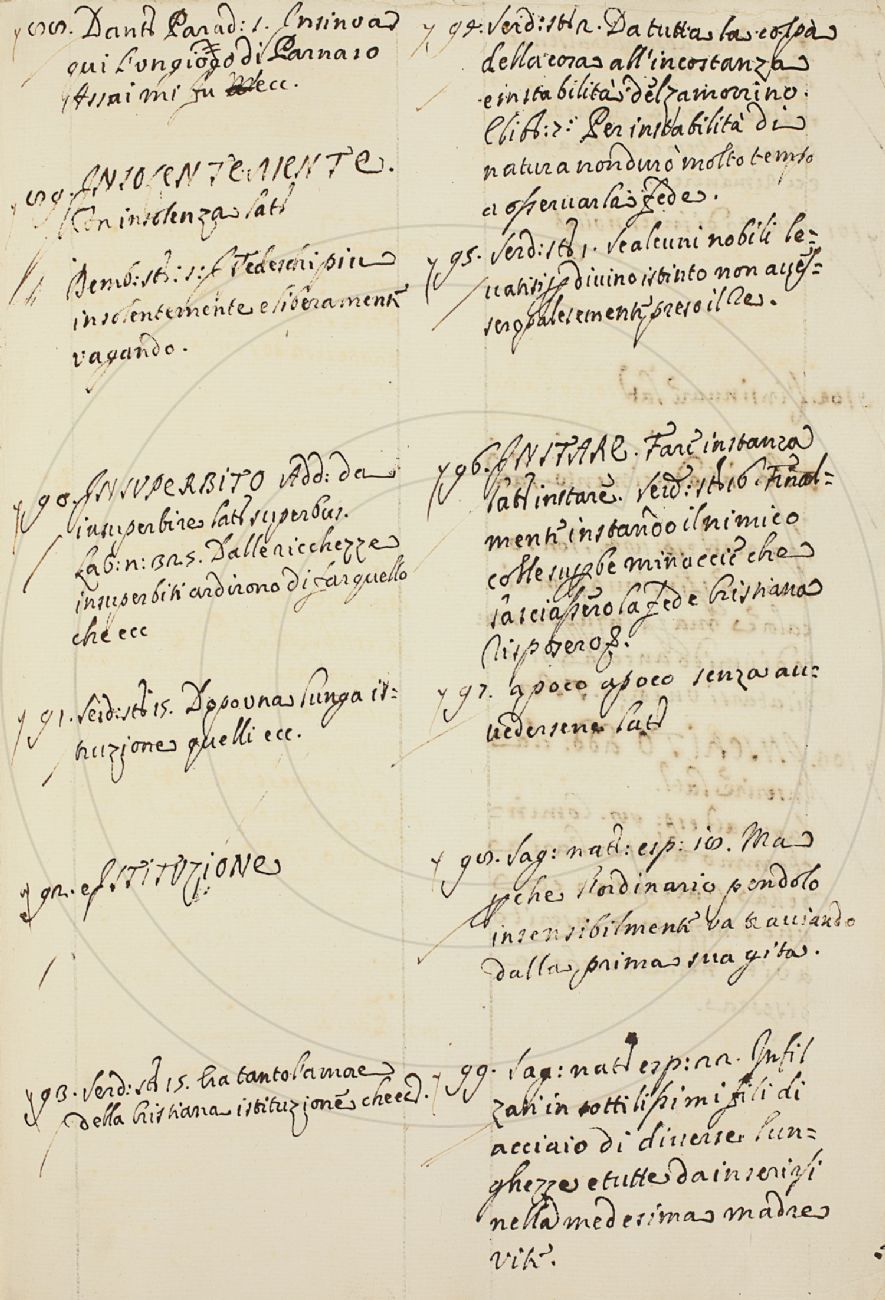 88. Dante Parad: 1. Insino a
qui l'un giogo di Parnaso
Assai mi fu ecc.
89. INSOLENTEMENTE.
Con insolenza lat:
Bemb: st: Tedeschi piu
insolentemente e liberamente
vagando.
90. INSUPERBITO Add: da
insuperbire lat: superbus.
Lab: n: 325. Dalle ricchezze
insuperbiti ardirono di far quello
che ecc
91. Serd: st: 15. Dopo una lunga is-
truzione quelli ecc.
92. ISTITUZIONE
93. Serd: st: 15. tanto l'amae
della Cristiana istituzione che ecc.
94. Serd: st: 2. Da tutta la colpa
della cosa all'incostanza
e instabilità del zamorrino.
E lib: 7: Per instabilità di
natura non durò molto tempo
a osservar la fede.
95. Serd: st: 1. Se alcuni nobili le-
vatisi p divino istinto non aves-
sero palesemente preso il Re.
96. INSTARE. Fare instanza
lat: instare. Serd: st: 16. Final-
mente instando il nimico
colle superbe minaccie che
lasciassero la Fede Cristiana
Risposero
97. a poco a poco senza av-
vedersene lat:
98. Sag: nat: esp: 18. Ma
pche l'ordinario pendolo
insensibilmente va tracciando
dalla prima sua gita.
99. Sag: nat: esp: 22. Infil
zati in sottilissimi fili di
acciaio di diverse lun-
ghezze e tutte da inserirsi
nella medesima madre
vite.